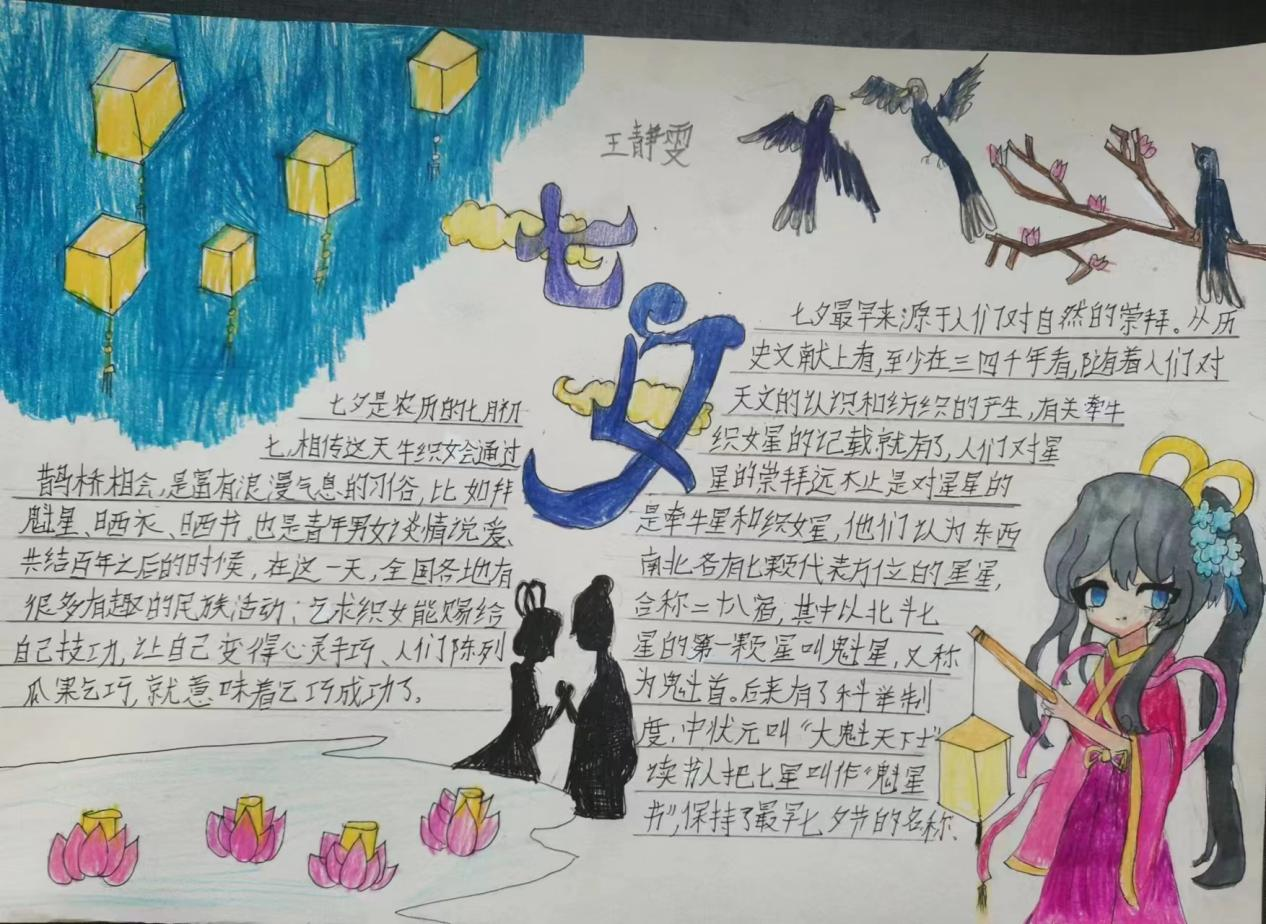 王静雯
七夕
七夕是农历的七月初
七,相传这天牛织女会通过
鹊桥相会,是富有浪漫气息的习俗,比如拜
魁星、晒衣、晒书.也是青年男女谈情说爱、
共结百年之后的时候,在这一天,全国各地有
很多有趣的民族活动:乞求织女能赐给
自己技功,让自己变得心灵手巧、人们陈列
瓜果乞巧,就意味着乞巧成功了。
七夕最早来源于人们对自然的崇拜。从历
史文献上看,至少在三四千年看,随着人们对
天文的认识和纺织的产生,有关牵牛
织女星的记载就有了,人们对星
星的崇拜远不止是对星星的
是牵牛星和织女星,他们认为东西
南北各有七颗代表方位的星星,
合称二十八宿,其中以北斗七
星的第一颗星叫魁星,又称
为魁首。后来有了科举制
度,中状元叫“大魁天下士”
读书人把七星叫作“魁星
书”,保持了最早七夕节的名称、